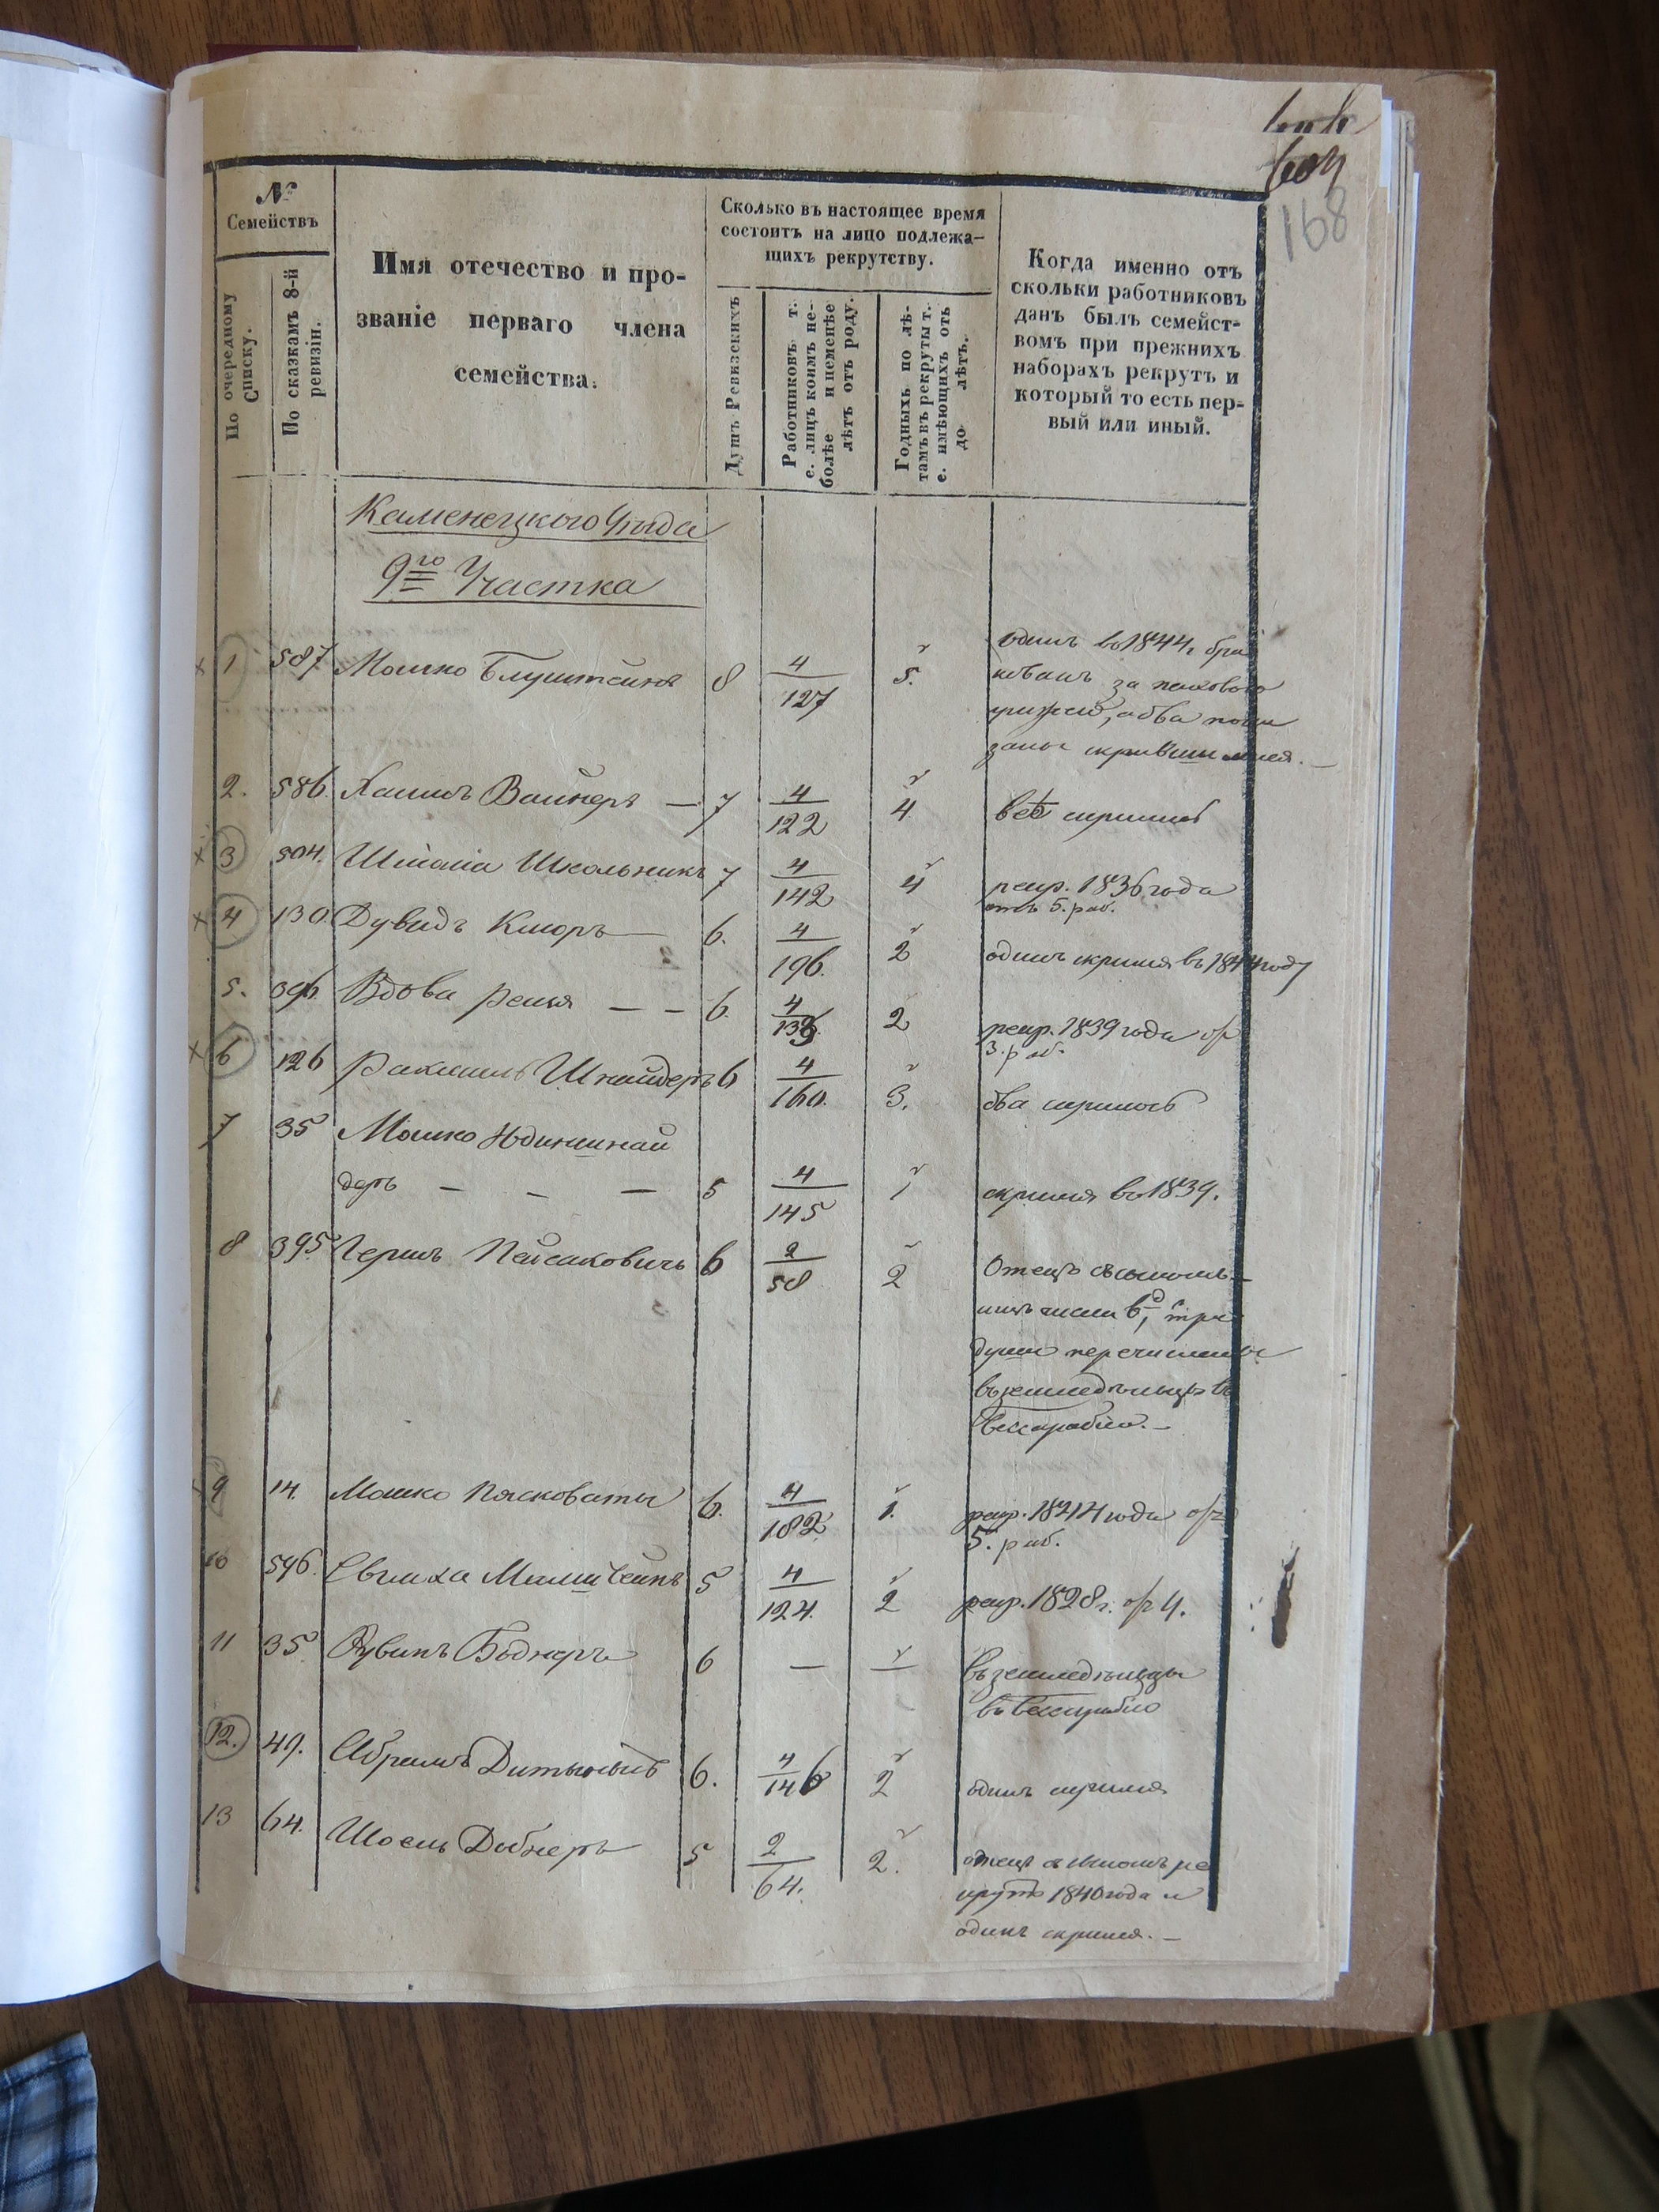 609
168
№
Семействъ
По очередному
Списку.
По сказкамъ 8-й
ревизіи.
Имя отечество и про-
званіе перваго члена
семейства.
Сколько въ настоящее время
состоитъ на лицо подлежа-
щихъ рекрутству.
Душъ Ревизскихъ
Работниковъ т.
е. лицъ коимъ не-
болѣе и неменѣе
лѣтъ отъ роду.
Годныхъ по лѣ-
тамъ въ рекруты т.
е. имѣющихъ отъ
до лѣтъ.
Когда именно отъ
скольки работниковъ
данъ былъ семейст-
вомъ при прежнихъ
наборахъ рекрутъ и
который то есть пер-
вый или иный.
Каменецкого Уѣзда
9го Участка
1 587 Мошко Блуштейнъ 8 4/127 5. одинъ въ 1844 г. бра
кованъ за
два пока
заны скрывшимися.
2. 586. Хаимъ Вайнеръ — 7 4/122 4 всѣ скрылись
3 504. Шмаія Школьникъ 7 4/142 4 рекр. 1836 года
отъ 5. раб.
4 130. Дувидъ — 6. 4/196. 2 одинъ скрылся въ 1844 году
5. 396 Вдова — — 6. 4/139 2 рекр. 1839 года от
3. раб.
6 126 Шнайдеръ 6 4/160. 3. два скрылось
7 35 Мошко
деръ — — — 5 4/145 1 скрылся въ 1839.
8 395 Гершъ Пейсаковичъ 6 2/58 2 Отецъ съ сыномъ
три
души перечислены
въ земледѣльцы въ
Бессарабію. —
9 14. Мошко Пясковаты 6. 4/182 1. рекр. 1844 года от
5. раб.
10 596. 5 4/124. 2 рекр. 1828 г. от 4.
11 35 Рувинъ Боднеръ 6 — — въ земледѣльцы
въ Бессарабію
12. 49. Абрамъ 6. 4/146 2 одинъ скрылся
13 64. Шоель 5 2/64. 2. отецъ съ сыномъ ре
крутъ 1840 года и
одинъ скрылся. —